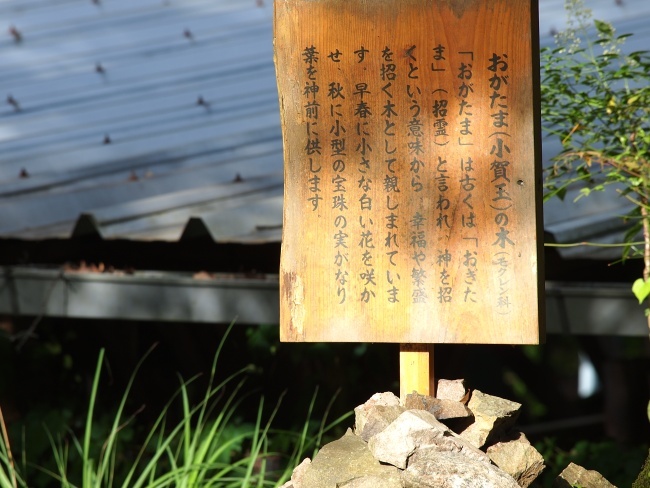 おがたま(小賀玉)の木(モクレン科)
「おがたま」は古くは「おぎた
ま」(招霊)と言われ、神を招
くという意味から 幸福や繁盛
を招く木として親しまれていま
す 早春に小さな白い花を咲か
せ、秋に小型の宝珠の実がなり
葉を神前に供します.